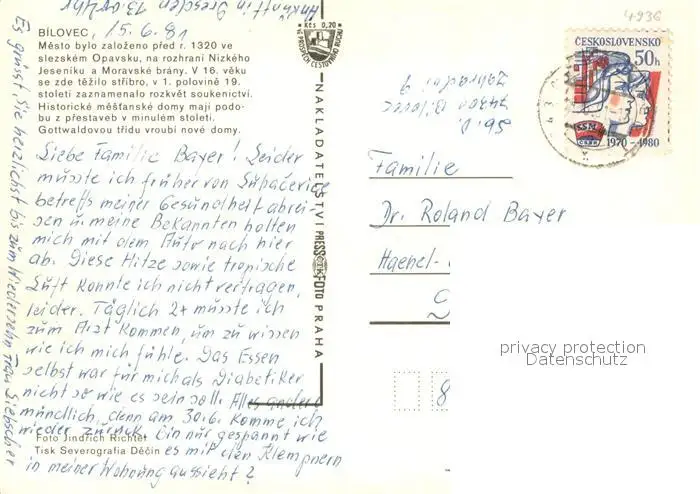 15.6.81
BÍLOVEC,
Město bylo založeno před r. 1320 ve
slezském Opavsku, na rozhraní Nízkého
Jeseníku a Moravské brány. V 16. věku
se zde těžilo stříbro, v 1. polovině 19.
století zaznamenalo rozkvět soukenictví.
Historické měšťanské domy mají podo-
bu z přestaveb v minulém století.
Gottwaldovou třídu vroubí nové domy.
Liebe Familie Bayer! Leider
musste ich früher von
betreffs meiner Gesundheit abrei-
sen u. meine Bekannten holten
mich mit dem Auto nach hier
ab. Diese Hitze sowie tropische
Luft konnte ich nicht vertragen,
leider. Täglich 2x musste ich
zum Arzt kommen, um zu wissen
wie ich mich fühle. Das Essen
selbst war für mich als Diabetiker
nicht so wie es sein soll. Alles andere
mündlich, denn am 30.6. komme ich
wieder zurück. Bin nur gespannt wie
es mit den Klempnern
in meiner Wohnung aussieht?
Foto Jindřich Richter
Tisk Severografia Děčín
Es grüsst Sie herzlichst bis zum Wiedersehn Frau
Ankunft in Dresden 13.00 Uhr
Kčs 0,20
VE PROSPĚCH CESTOVNÍHO RUCHU
NAKLADATELSTVÍ PRESSFOTO PRAHA
74301 Bílovec
Zahradní 9
4936
ČESKOSLOVENSKO
50h
SSM
1970 - 1980
Familie
Dr. Roland Bayer
Haehel-
8
privacy protection
Datenschutz